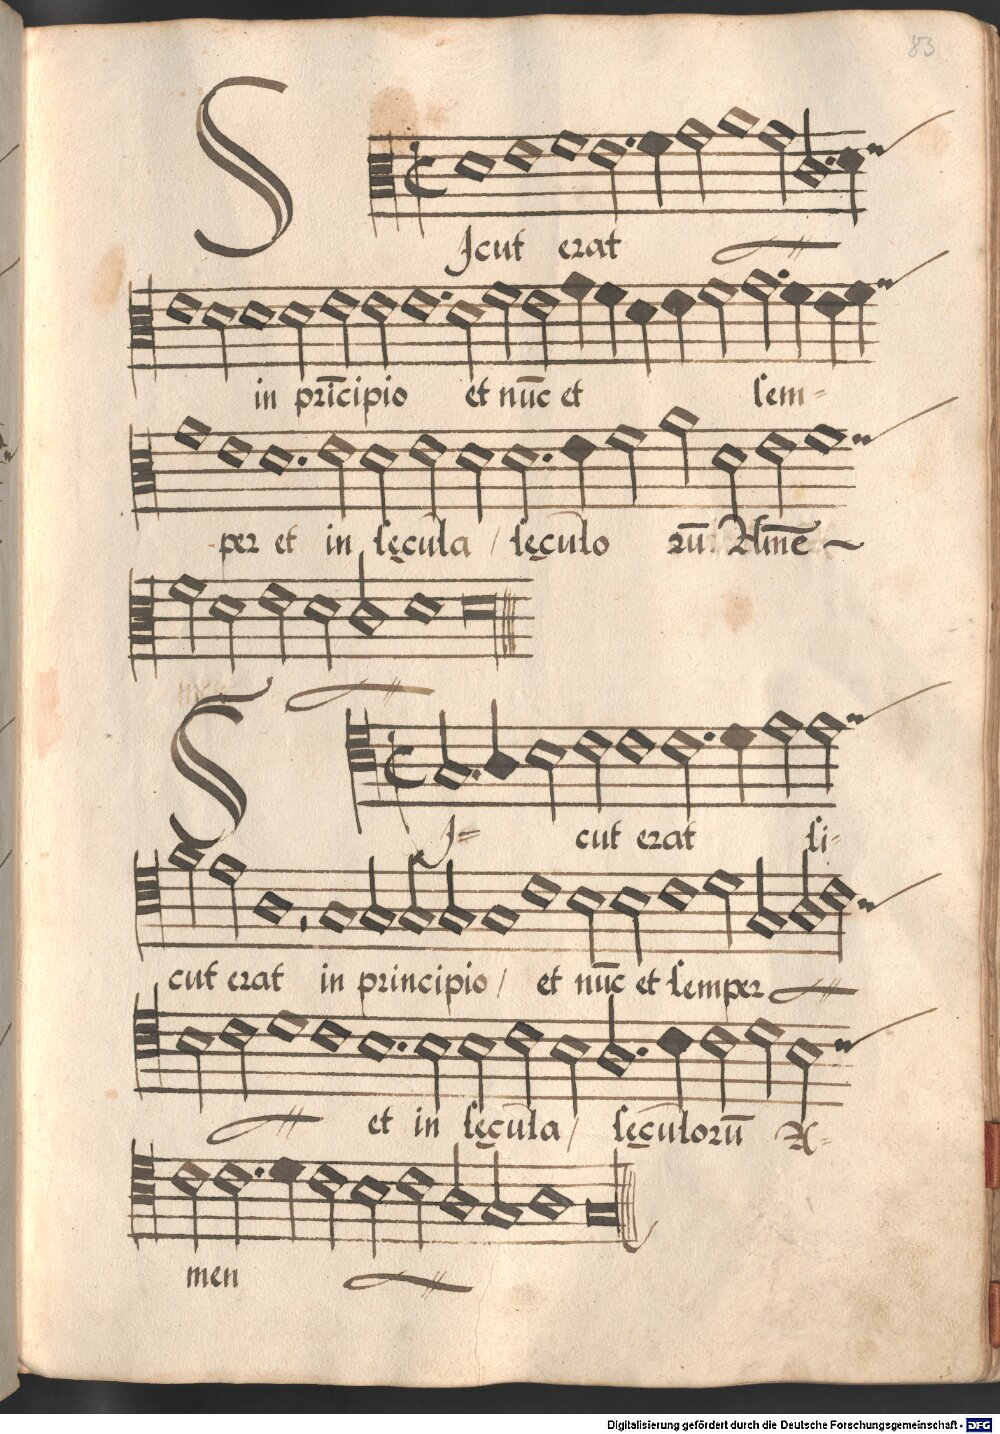 83
SJcut erat
in prīcipio et nūc et sem-
per et in sęcula / sęculo rū Amē
SJ= cut erat si-
cut erat in principio / et nūc et semper
et in sęcula / sęculorū A-
men
Digitalisierung gefördert durch die Deutsche Forschungsgemeinschaft - DFG